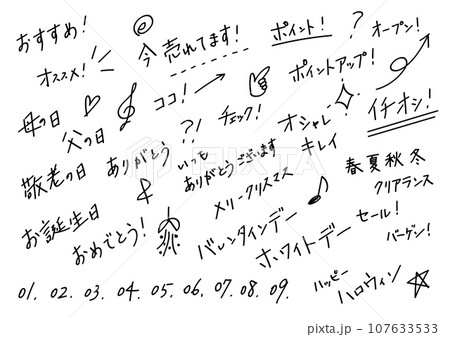 おすすめ!
今売れてます!
ポイント!
?
オープン!
オススメ!
ココ!
ポイントアップ!
母の日
父の日
?!
チェック!
オシャレ
キレイ
イチオシ!
敬老の日
ありがとう
いつも
ありがとうございます
春夏秋冬
クリアランス
お誕生日
&
メリークリスマス
おめでとう!
バレンタインデー
ホワイトデー
セール!
バーゲン!
01. 02. 03. 04. 05. 06. 07. 08. 09.
ハッピー
ハロウィン
PIXTA
pixta.jp - 107633533